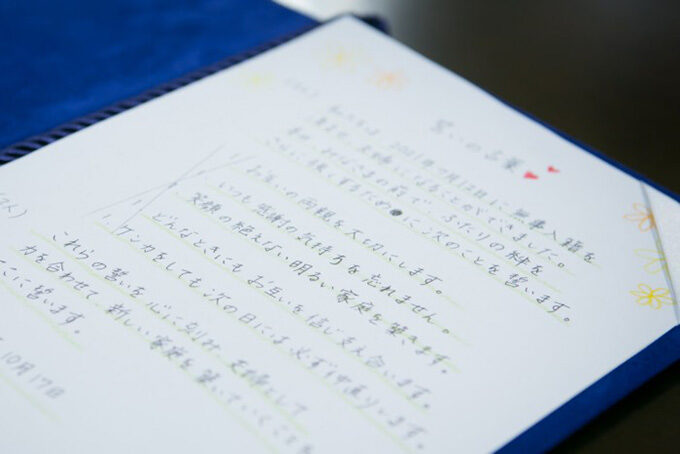 誓いの言葉
2021年7月12日に無事入籍を
夫婦になることができました。
の前で、ふたりの絆を
に次のことを誓います。
お互いの両親を大切にします。
いつも感謝の気持ちを忘れません。
笑顔の絶えない明るい家庭を築きます。
どんなときにもお互いを信じ支え合います。
ケンカをしても次の日には必ず仲直りします。
これらの誓いを心に刻み、夫婦として
力を合わせて、新しい家庭を築いていくことを
ここに誓います。
10月17日